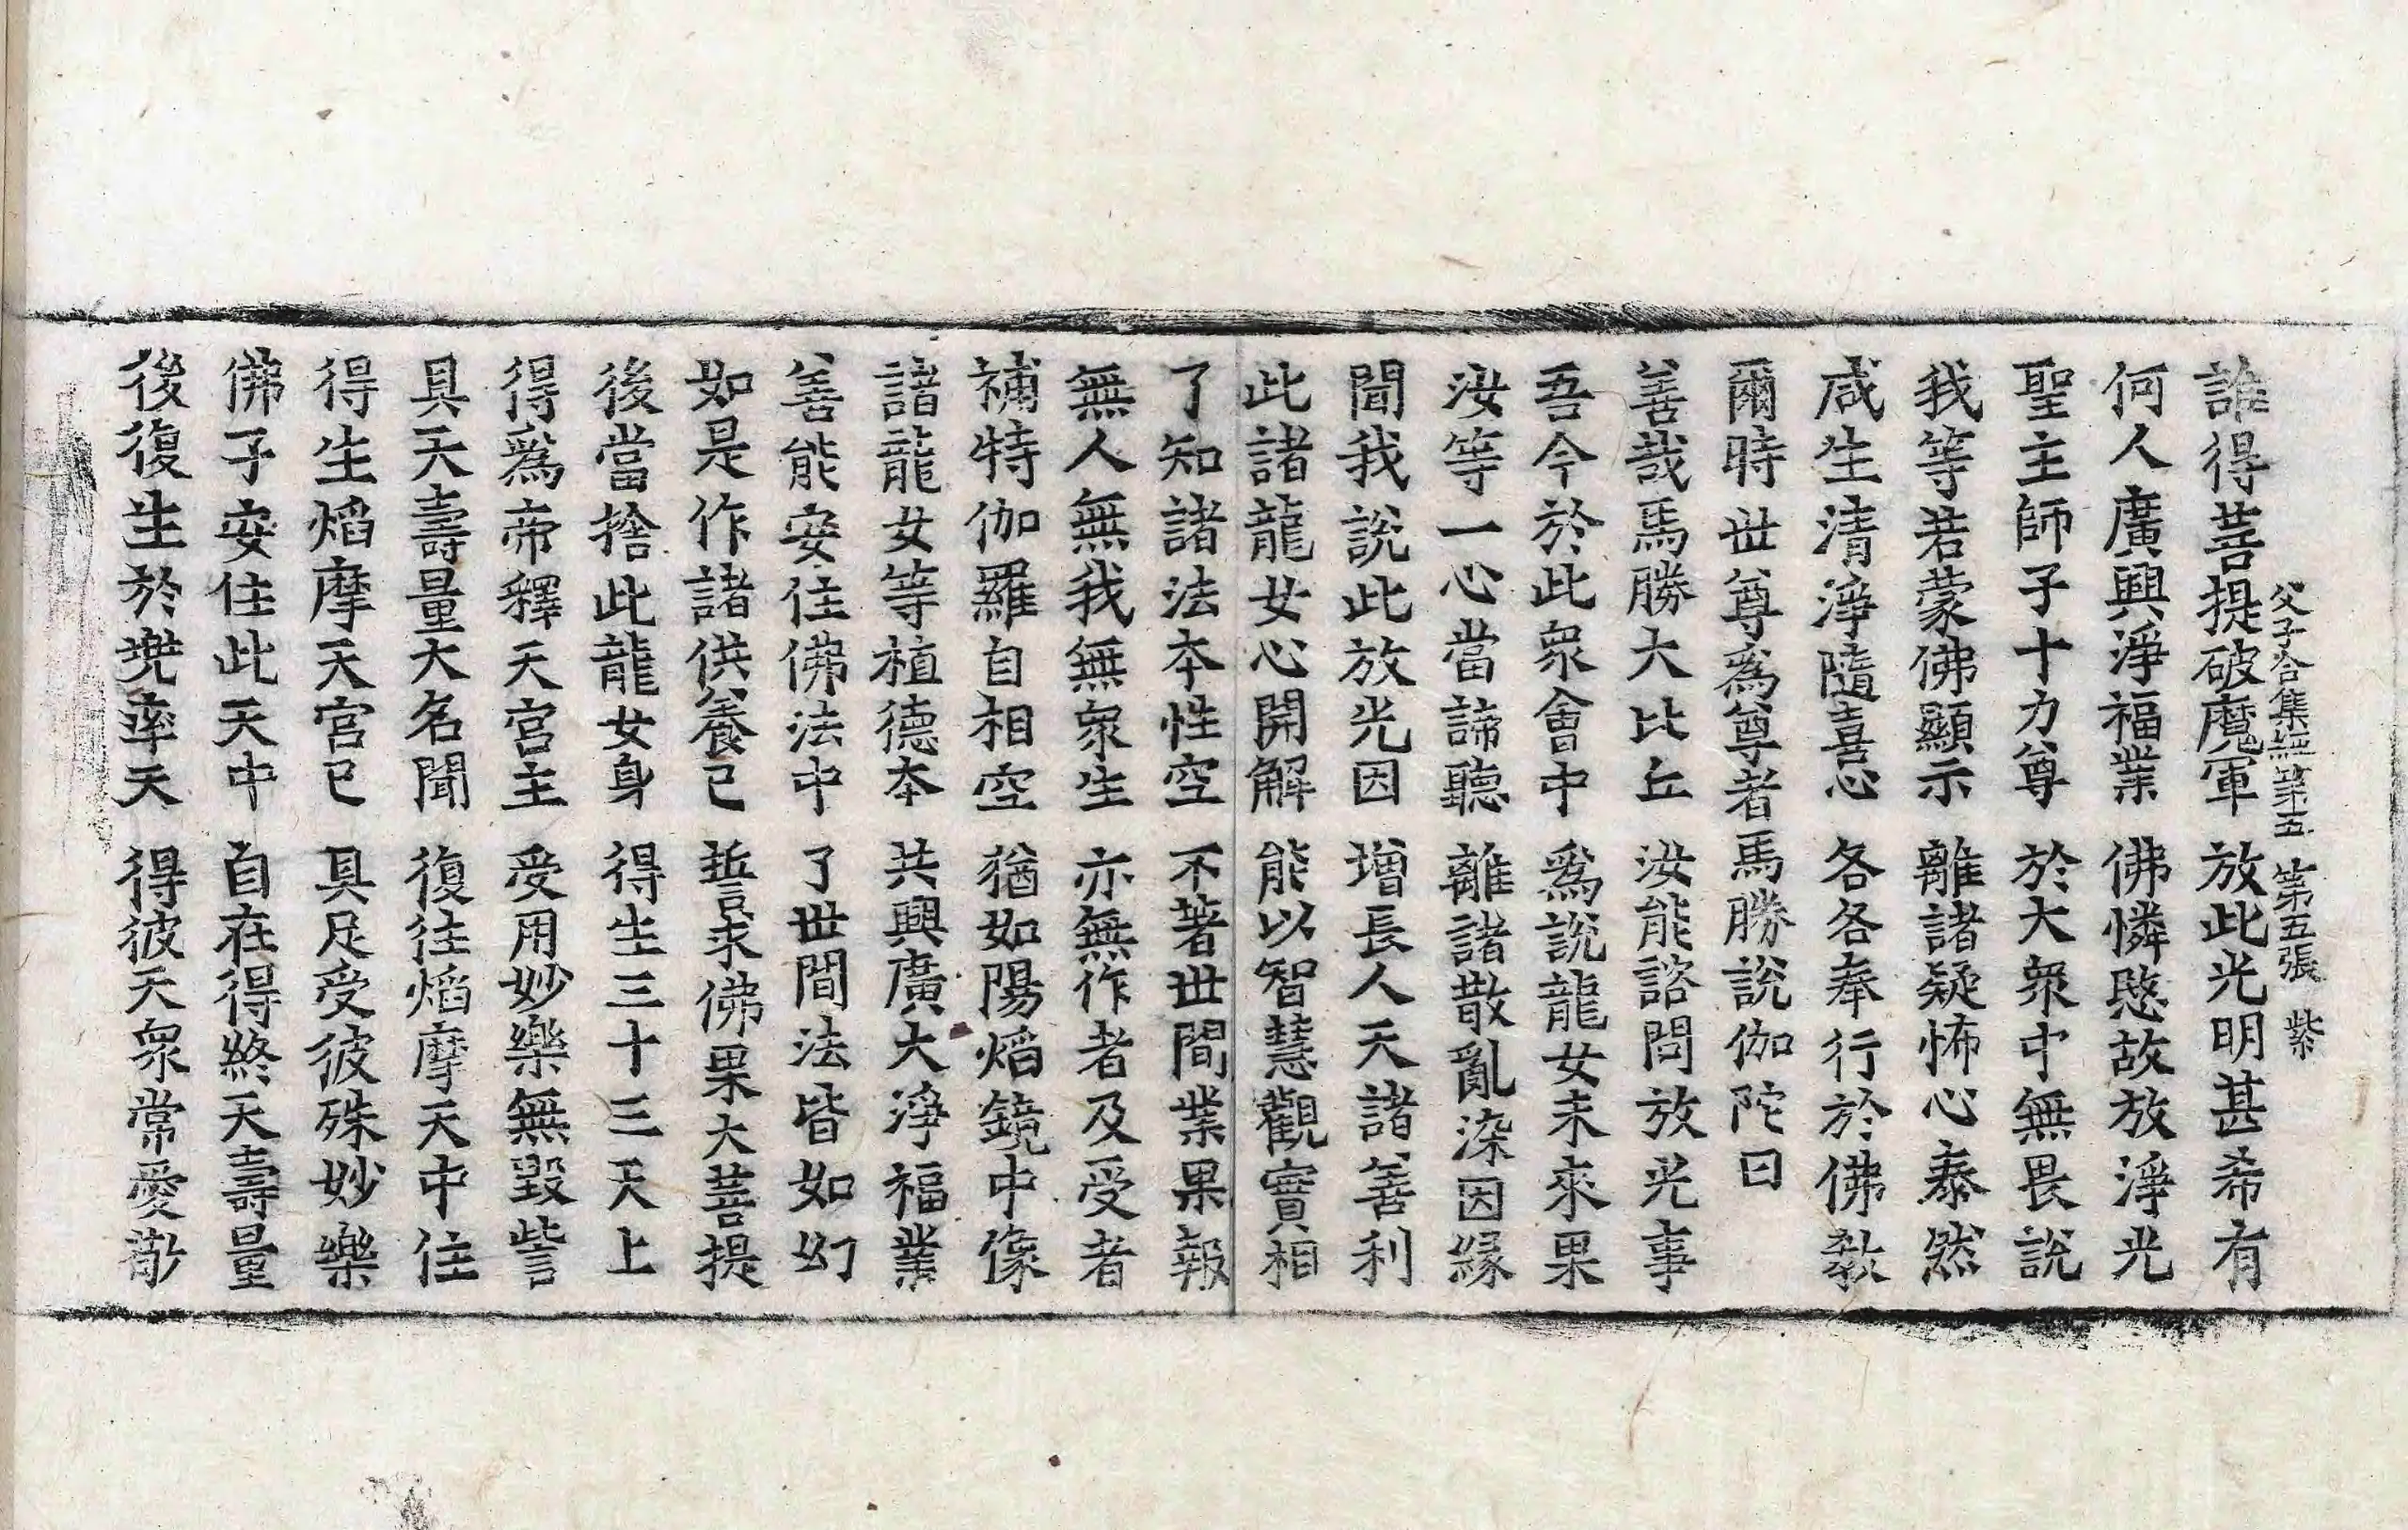 父子合集經第五 第五張 紫
誰得菩提破魔軍 放此光明甚希有
何人廣興淨福業 佛憐愍故放淨光
聖主師子十力尊 於大衆中無畏說
我等若蒙佛顯示 離諸疑怖心泰然
咸生清淨隨喜心 各各奉行於佛教
爾時世尊爲尊者馬勝說伽陀曰
善哉馬勝大比丘 汝能諮問放光事
吾今於此衆會中 爲說龍女未來果
汝等一心當諦聽 離諸散亂染因緣
聞我說此放光因 增長人天諸善利
此諸龍女心開解 能以智慧觀實相
了知諸法本性空 不著世間業果報
無人無我無衆生 亦無作者及受者
補特伽羅自相空 猶如陽焰鏡中像
諸龍女等植德本 共興廣大淨福業
善能安住佛法中 了世間法皆如幻
如是作諸供養已 誓求佛果大菩提
後當捨此龍女身 得生三十三天上
得爲帝釋天宮主 受用妙樂無毀訾
具天壽量大名聞 復往焰摩天中住
得生焰摩天宮已 具足受彼殊妙樂
佛子安住此天中 自在得終天壽量
後復生於兠率天 得彼天衆常愛敬